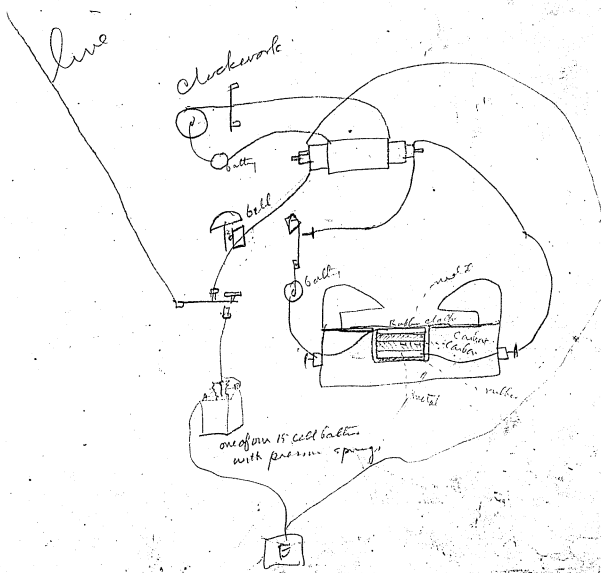 line
clockwork
battery
bell
battery
metal
Rubber cloth
Carbon
metal
rubber
one of our 15 cell battery
with pressure springs
E